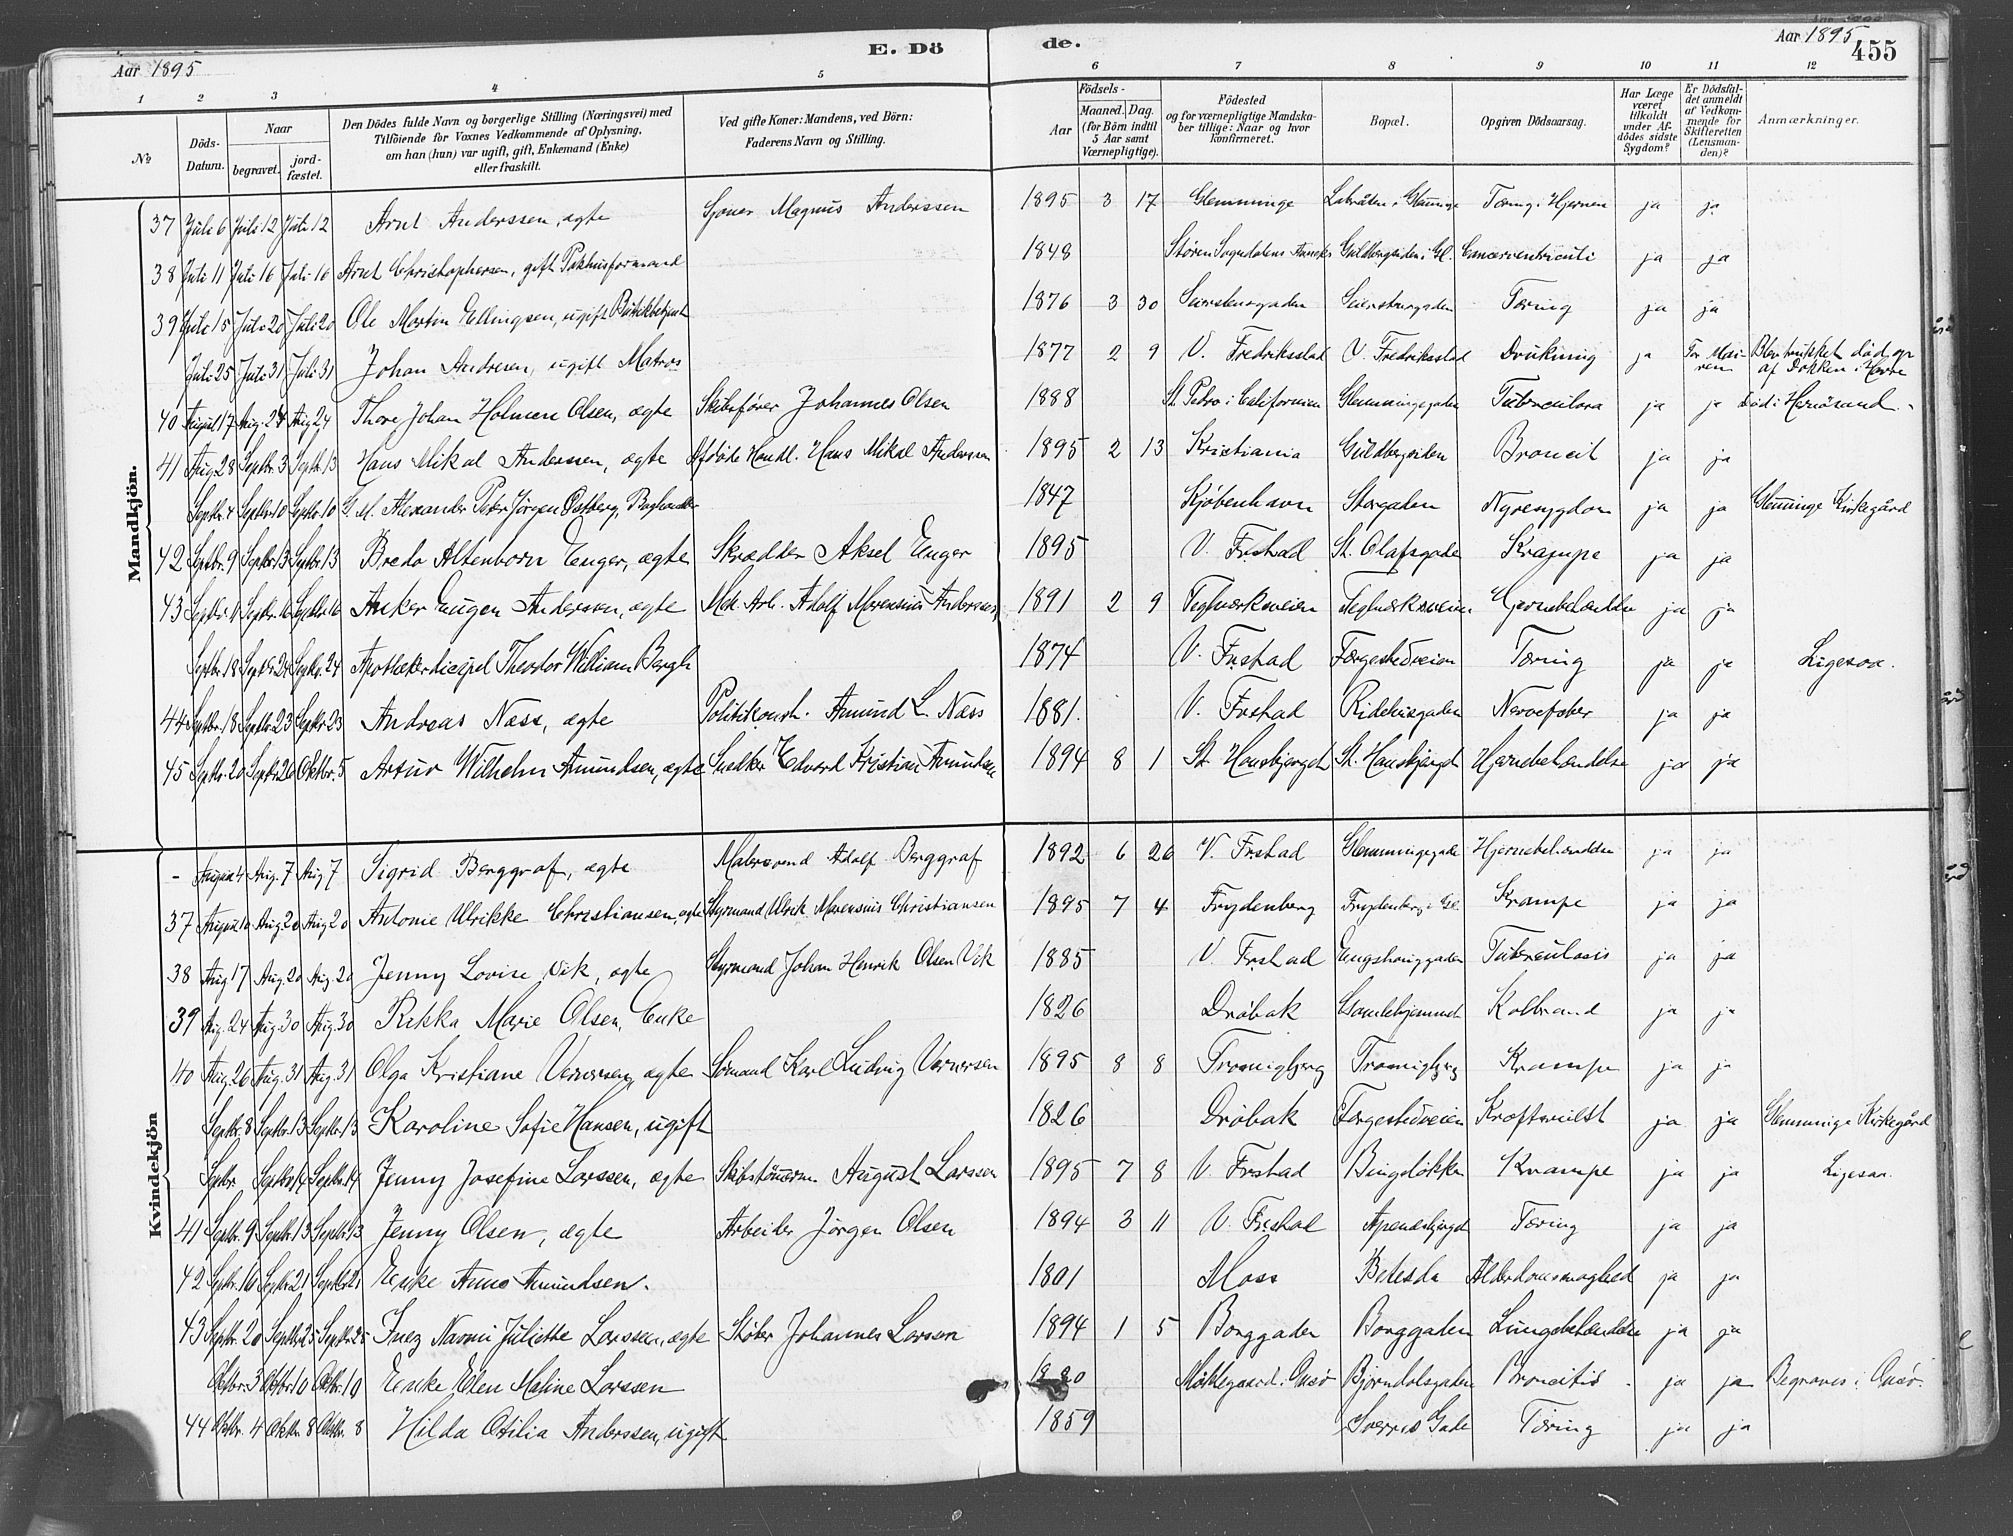 Aar 1895
E. Dö
de.
Aar 1895
455
1 2 3 4 5 6 7 8 9 10 11 12
№
Döds-Datum.
Naar
begravet.
jord-fæstet.
Den Dödes fulde Navn og borgerlige Stilling (Næringsvei) med
Tilföiende for Voxnes Vedkommende af Oplysning,
om han (hun) var ugift, gift, Enkemand (Enke)
eller fraskilt.
Ved gifte Koner: Mandens, ved Börn:
Faderens Navn og Stilling.
Födsels-
Aar
Maaned. Dag.
(for Börn indtil
5 Aar samt
Værnepligtige).
Födested
og for værnepligtige Mandska-
ber tillige: Naar og hvor
konfirmeret.
Bopæl.
Opgiven Dödsaarsag.
Har Læge
været
tilkaldt
under Af-
dödes sidste
Sygdom?
Er Dödsfal-
det anmeldt
af Vedkom-
mende for
Skifteretten
(Lensman-
den)?
Anmærkninger.
Mandkjön.
37 Juli 6 Juli 12 Juli 12 Arnt Anderssen, ægte Magnus Anderssen 1895 3 17 Glemminge Tæring i Hjernen ja ja
38 Juli 11 Juli 16 Juli 16 Arnt Christophersen, gift Pakhusformand 1848 Guldbergsiden i Gl. Cancer ventriculi ja ja
39 Juli 15 Juli 20 Juli 20 Ole Martin Ellingsen, ugift Butikbetjent 1876 3 30 Seiersborggaden Seiersborggaden Tæring ja ja
Juli 25 Juli 31 Juli 31 Johan Andresen, ugift Matros 1877 2 9 V. Fredriksstad V. Fredriksstad Drukning ja Blev trukket död op
af Dokken i Havre
40 August 17 Aug. 24 Aug 24 Thore Johan Holmen Olsen, ægte Skibsfører Johannes Olsen 1888 St. Pedro i Californien Glemmingegaden Tuberculosa ja ja Död i Hernösand.
41 Aug 28 Septbr. 3 Septbr. 13 Hans Mikal Anderssen, ægte Afdøde Handl. Hans Mikal Anderssen 1895 2 13 Kristiania Guldbergsiden Broncit ja ja
Septbr. 4 Septbr. 10 Septbr. 10 G. M. Alexander Peter Jørgen Østberg, Boghandler 1847 Kjöbenhavn Storgaden Nyresygdom ja ja Glemminge Kirkegård
42 Septbr. 9 Septbr. 13 Septbr. 13 Bredo Altenborn Enger, ægte Skrædder Aksel Enger 1895 V. Frstad St. Olafsgade Krampe ja ja
43 Septbr. 11 Septbr. 16 Septbr. 16 Anker Eugen Anderssen, ægte Mek. Arb. Adolf Marensius Anderssen 1891 2 9 Teglværksveien Teglværksveien Hjernebetændelse ja ja
Septbr. 18 Septbr. 24 Septbr. 24 Apothekerdicipel Theodor William Bergh 1874 V. Frstad Færgestedveien Tæring ja ja Ligesaa.
44 Septbr. 18 Septbr. 23 Septbr. 23 Andreas Næss, ægte Politikonst. Amund L. Næss 1881. V. Frstad Ridehusgaden Nervefeber ja ja
45 Septbr. 20 Septbr. 26 Oktbr. 5 Artur Wilhelm Amundsen, ægte Snedker Edvard Kristian Amundsen 1894 8 1 St. Hansbjerget St. Hansbjerget Hjernebetændelse ja ja
Kvindekjön
- August 4 Aug. 7 Aug 7 Sigrid Berggraf, ægte Malersvend Adolf Berggraf 1892 6 26 V. Frstad Glemmingegade Hjernebetændelse ja ja
37 August 10 Aug. 20 Aug 20 Antonie Ulrikke Christiansen, ægte Styrmand Ulrik Marensius Christiansen 1895 7 4 Frydenberg Frydenberg i Gl. Krampe ja ja
38 Aug 17 Aug. 20 Aug. 20 Jenny Lovise Vik, ægte Styrmand Johan Henrik Olsen Vik 1885 V. Frstad Tuberculosis ja ja
39 Aug. 24 Aug 30 Aug. 30 Rikka Marie Olsen, Enke 1826 Dröbak Gamlehjemmet Kolbrand ja ja
40 Aug. 26 Aug. 31 Aug. 31 Olga Kristiane Vernersen, ægte Sömand Karl Ludvig Vernersen 1895 8 8 Tromigbjerg Tromigbjerg Krampe ja ja
Septbr. 8 Septbr. 13 Septbr. 13 Karoline Sofie Hansen, ugift 1826 Dröbak Færgestedveien Kræftsvulst ja ja Glemminge Kirkegård
Septbr. Septbr. 14 Septbr. 14 Jenny Josefine Larssen, ægte Skibstömerm. August Larssen 1895 7 8 V. Frstad Bingslökken Krampe ja ja Ligesaa.
41 Septbr. 9 Septbr. 13 Septbr. 13 Jenny Olsen, ægte Arbeider Jörgen Olsen 1894 3 11 V. Frstad Apenæsbjerget Tæring ja ja
42 Septbr. 16 Septbr. 21 Septbr. 21 Enke Anne Amundsen. 1801 Moss Betesda Alderdomssvaghed ja ja
43 Septbr. 20 Septbr. 25 Septbr. 25 Inez Naomi Juliette Larssen, ægte Støber Johannes Larssen 1894 1 5 Borggaden Borggaden Lungebetændelse ja ja
Oktbr. 3 Oktbr. 10 Oktbr. 10 Enke Elen Maline Larssen Onsö Bjørndalsgaden Broncitis ja ja Begraves i Onsö.
44 Oktbr. 4 Oktbr. 8 Oktbr. 8 Hilda Otilia Anderssen, ugift 1859 Sverres Gade Tæring ja ja